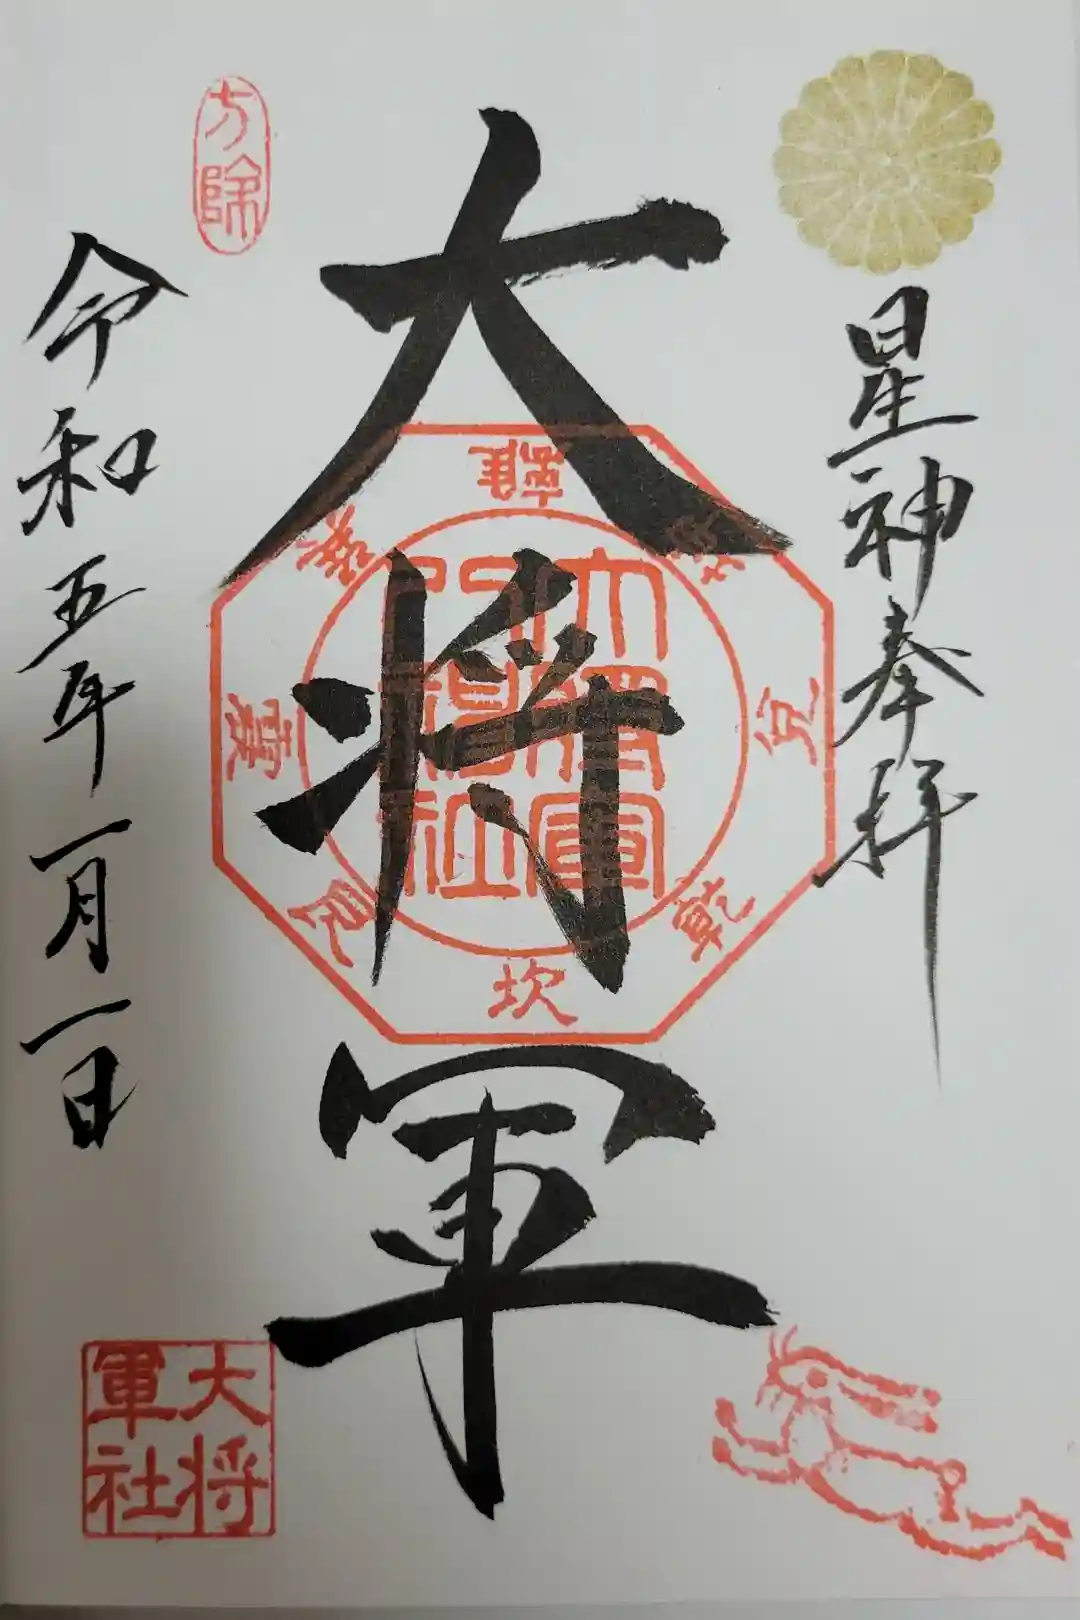 星神奉拝
大将軍
離
坤
兌
乾
坎
艮
震
巽
大将軍
八神社
方除
令和五年一月一日
大将
軍社